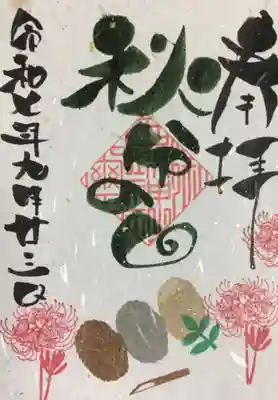 奉拝
秋分の日
令和七年九月廿三日